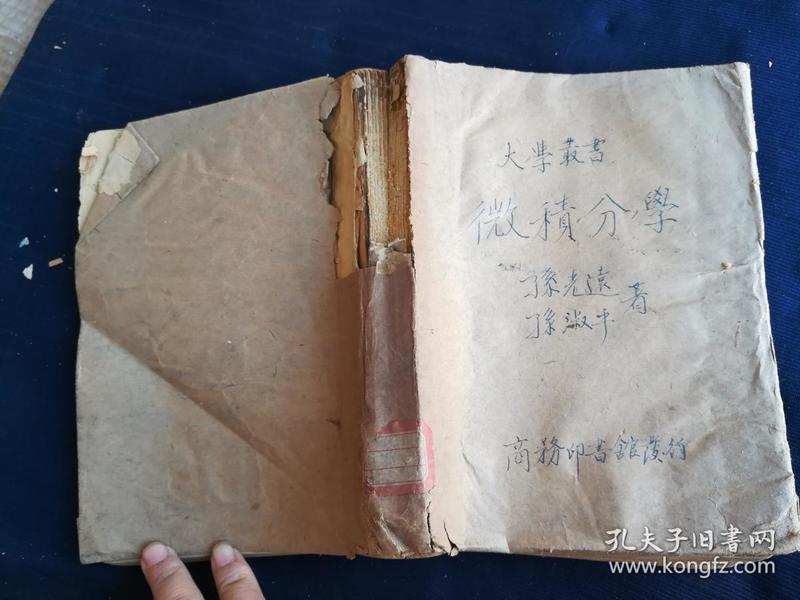 大學叢書
微積分學
孫光遠
孫淑平
著
商務印書館發行
孔夫子旧书网
www.kongfz.com